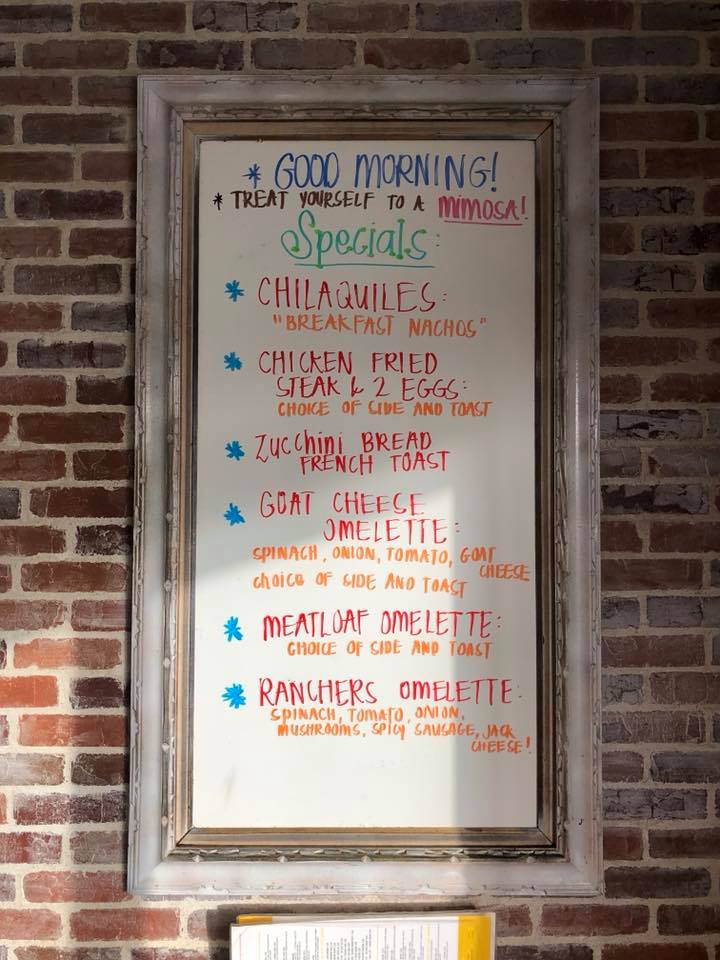 * GOOD MORNING!
* TREAT YOURSELF TO A MIMOSA!
Specials:
* CHILAQUILES:
"BREAKFAST NACHOS"
* CHICKEN FRIED
STEAK & 2 EGGS:
CHOICE OF SIDE AND TOAST
* Zucchini BREAD
FRENCH TOAST
* GOAT CHEESE
OMELETTE:
SPINACH, ONION, TOMATO, GOAT
CHEESE
CHOICE OF SIDE AND TOAST
* MEATLOAF OMELETTE:
CHOICE OF SIDE AND TOAST
* RANCHERS OMELETTE:
SPINACH, TOMATO, ONION,
MUSHROOMS, SPICY SAUSAGE, JACK
CHEESE!